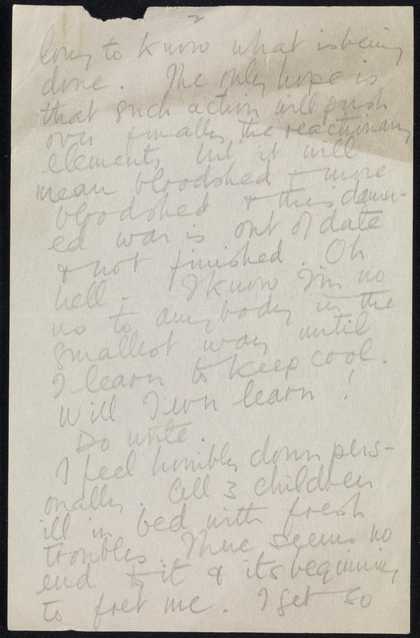 2
long to know what is being
done. The only hope is
that such action will push
over finally the reactionary
elements, but it will
mean bloodshed & more
bloodshed & this damn-
ed war is out of date
& not finished. Oh
hell. I know I'm no
us to anybody in the
smallest way until
I learn to keep cool.
Will I ever learn!
Do write.
I feel horribly down pers-
onally. All 3 children
ill in bed with fresh
troubles. There seems no
end to it & its beginning
to fret me. I get so